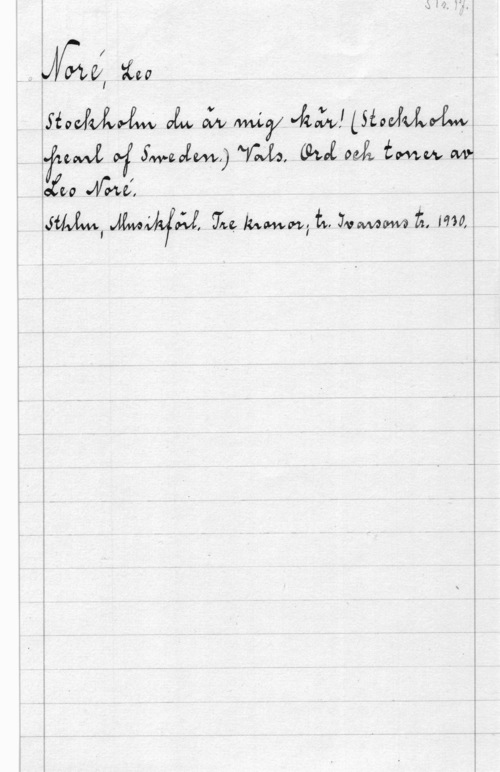 Noré, Leo
Stockholm du är mig kär! (Stockholm
pearl of Sweden.) Vals. Ord och toner av
Leo Noré.
Sthlm, Musikförl. Tre kronor; tr. Ivarsons tr. 1930.